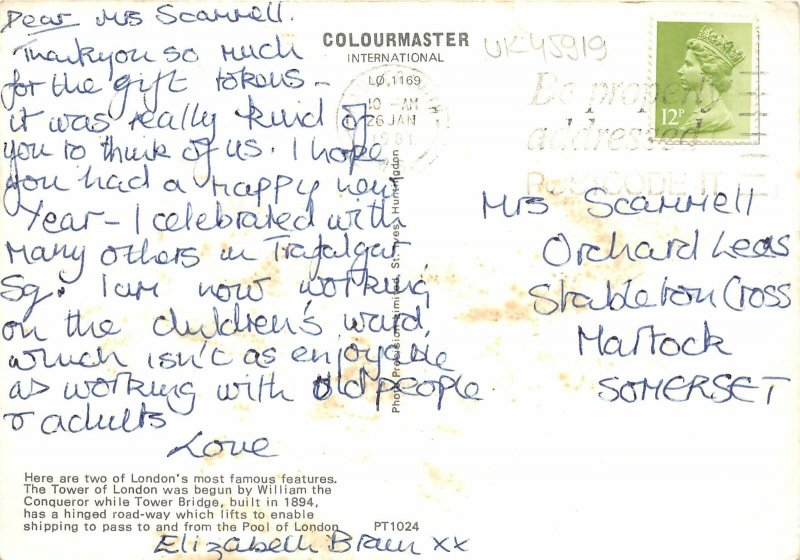 Dear Mrs Scammell.
Thankyou so much
for the gift tokens –
it was really kind of
you to think of us. I hope
you had a happy new
Year – I celebrated with
many others in Trafalgar
Sq. I am now working
on the children's ward,
which isn't as enjoyable
as working with old people
& adults
Love
Elizabeth xx
COLOURMASTER
INTERNATIONAL
LO,1169
10 - AM
26 JAN
UK45919
Be properly
addressed
POSTCODE IT
12P
Mrs Scammell
Orchard Leas
Stapleton Cross
Martock
SOMERSET
Photo Precision Limited, St. Ives, Huntingdon
Here are two of London's most famous features.
The Tower of London was begun by William the
Conqueror while Tower Bridge, built in 1894,
has a hinged road-way which lifts to enable
shipping to pass to and from the Pool of London
PT1024